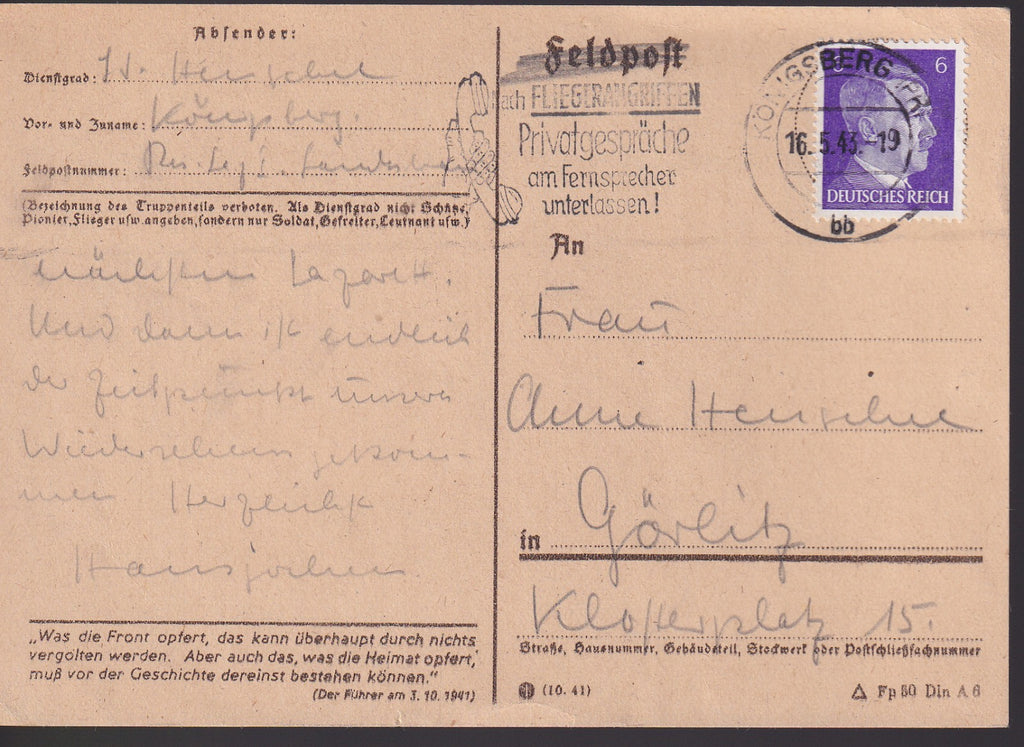 Absender:
Dienstgrad: Henschel
Vor- und Zuname: Königsberg.
Feldpostnummer: Res. Laz. I.
(Bezeichnung des Truppenteils verboten. Als Dienstgrad nicht Schütze,
Pionier, Flieger usw. angeben, sondern nur Soldat, Gefreiter, Leutnant usw.)
nächsten Lazarett.
Und dann ist endlich
der Zeitpunkt unseres
Wiedersehens gekom-
men Herzlichst
Hansjochen
„Was die Front opfert, das kann überhaupt durch nichts
vergolten werden. Aber auch das, was die Heimat opfert,
muß vor der Geschichte dereinst bestehen können."
(Der Führer am 3. 10. 1941)
Feldpost
nach FLIEGERANGRIFFEN
Privatgespräche
am Fernsprecher
unterlassen!
KÖNIGSBERG (PR)
16.5.43.-19
bb
6
DEUTSCHES REICH
An
Frau
Anne Henschel
in Görlitz
Klosterplatz 15.
Straße, Hausnummer, Gebäudeteil, Stockwerk oder Postschließfachnummer
(10. 41)
Fp 50 Din A 6